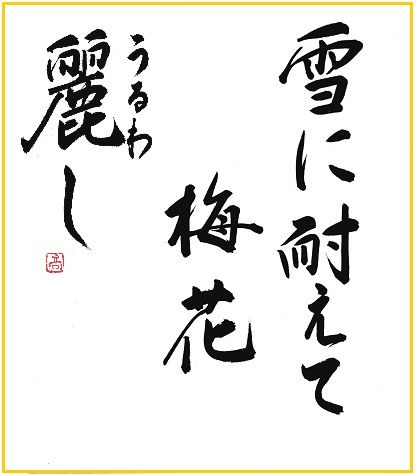 雪に耐えて
梅花
麗し
うるわ